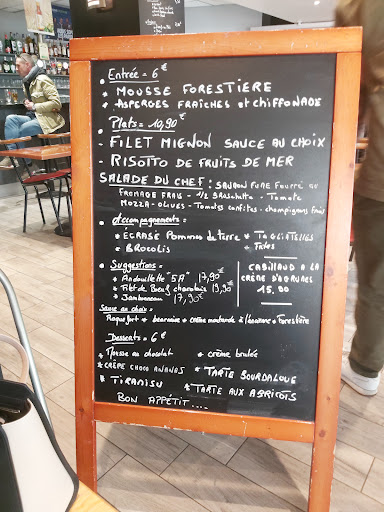 • Entrée = 6€
* MOUSSE FORESTIERE
* ASPERGES FRAICHES et chiffonade
• Plats = 10,90€
- FILET MIGNON SAUCE AU CHOIX
- RISOTTO DE FRUITS DE MER
SALADE DU CHEF : SAUMON FUMÉ Fourré au
FROMAGE FRAIS - 1/2 Bruschetta - Tomate
MOZZA - OLIVES - Tomates confites - champignons frais
• Accompagnements =
* ECRASÉ Pommes de terre * TAGLIATELLES
* BROCOLIS * Frites
• Suggestions =
* Andouillette "5A" 17,90€
* Filet de Boeuf charolais 19,90€
* Jambonneau 17,90€
CABILLAUD A LA
CRÈME D'AGRUMES
15,00
Sauce au choix =
Roquefort * bearnaise * crème moutarde à l'ancienne * Forestière
Desserts = 6€
* Mousse au chocolat * crème brulée
* CRÊPE CHOCO ANANAS * TARTE BOURDALOUE
* TIRAMISU * TARTE AUX ABRICOTS
BON APPÉTIT....